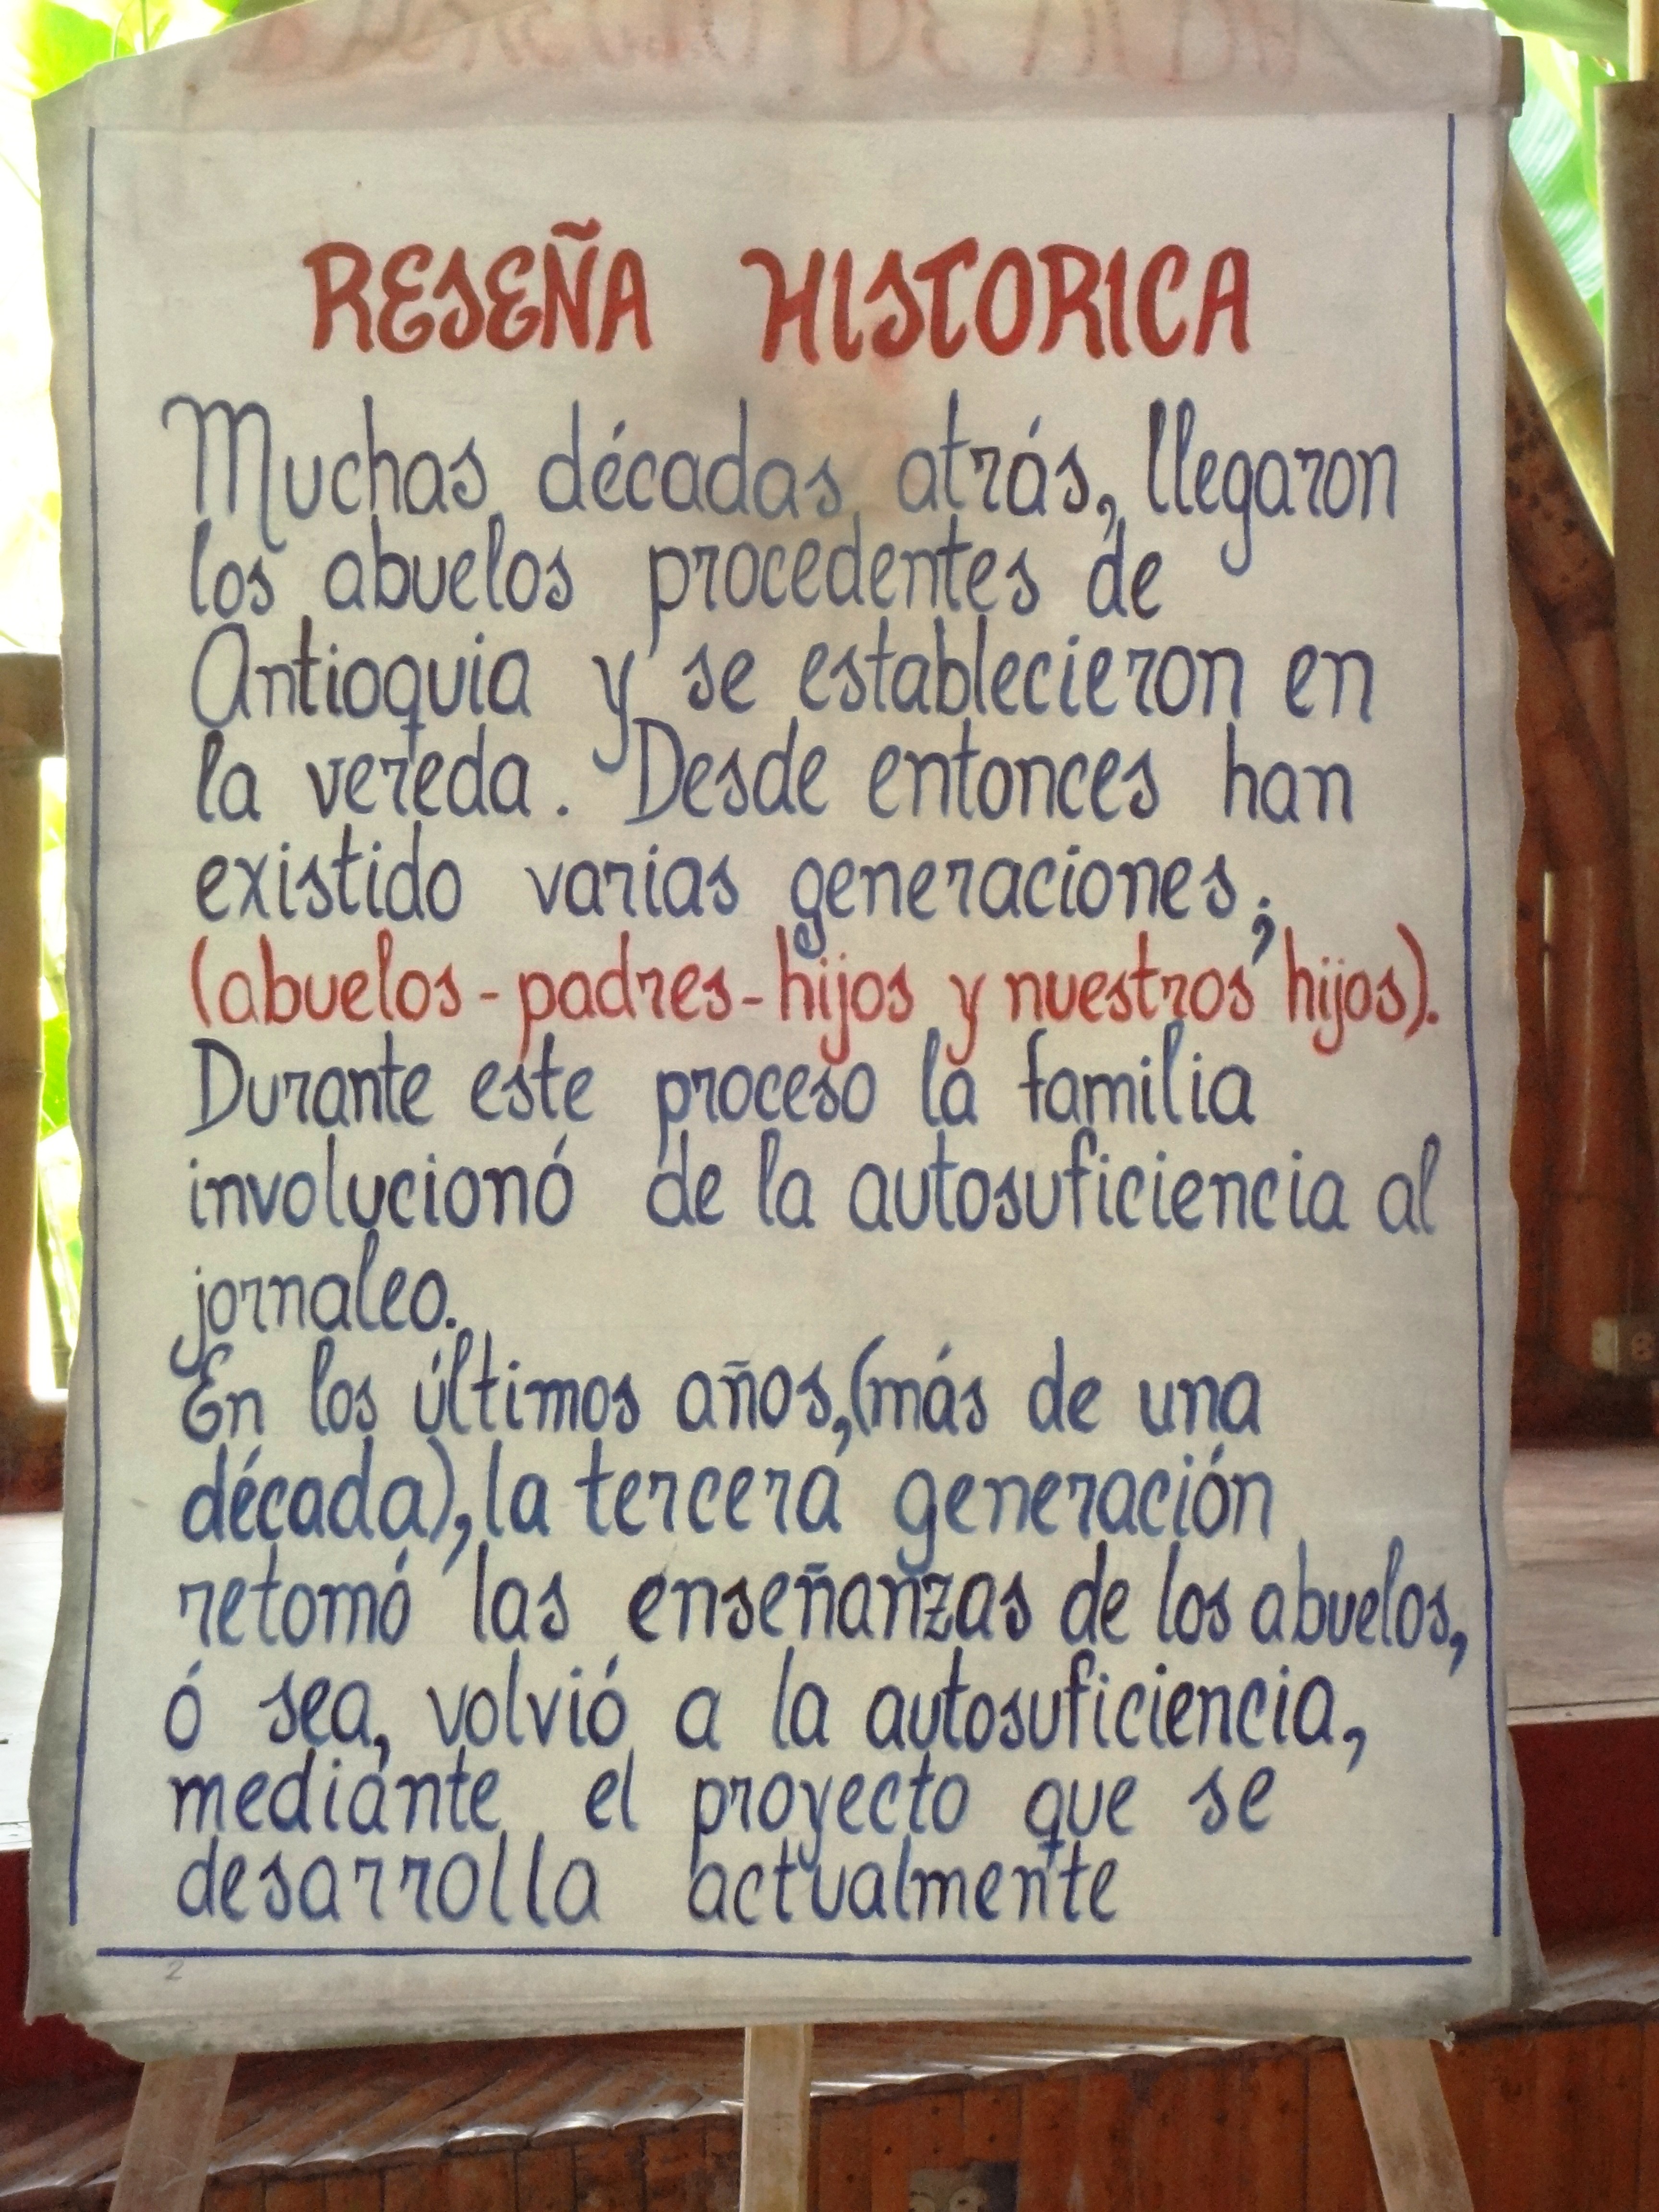 RESEÑA HISTORICA
Muchas décadas atrás, llegaron
los abuelos procedentes de
Antioquia y se establecieron en
la vereda. Desde entonces han
existido varias generaciones;
(abuelos - padres - hijos y nuestros hijos).
Durante este proceso la familia
involucionó de la autosuficiencia al
jornaleo.
En los últimos años,(más de una
década), la tercera generación
retomó las enseñanzas de los abuelos,
ó sea, volvió a la autosuficiencia,
mediante el proyecto que se
desarrolla actualmente
2